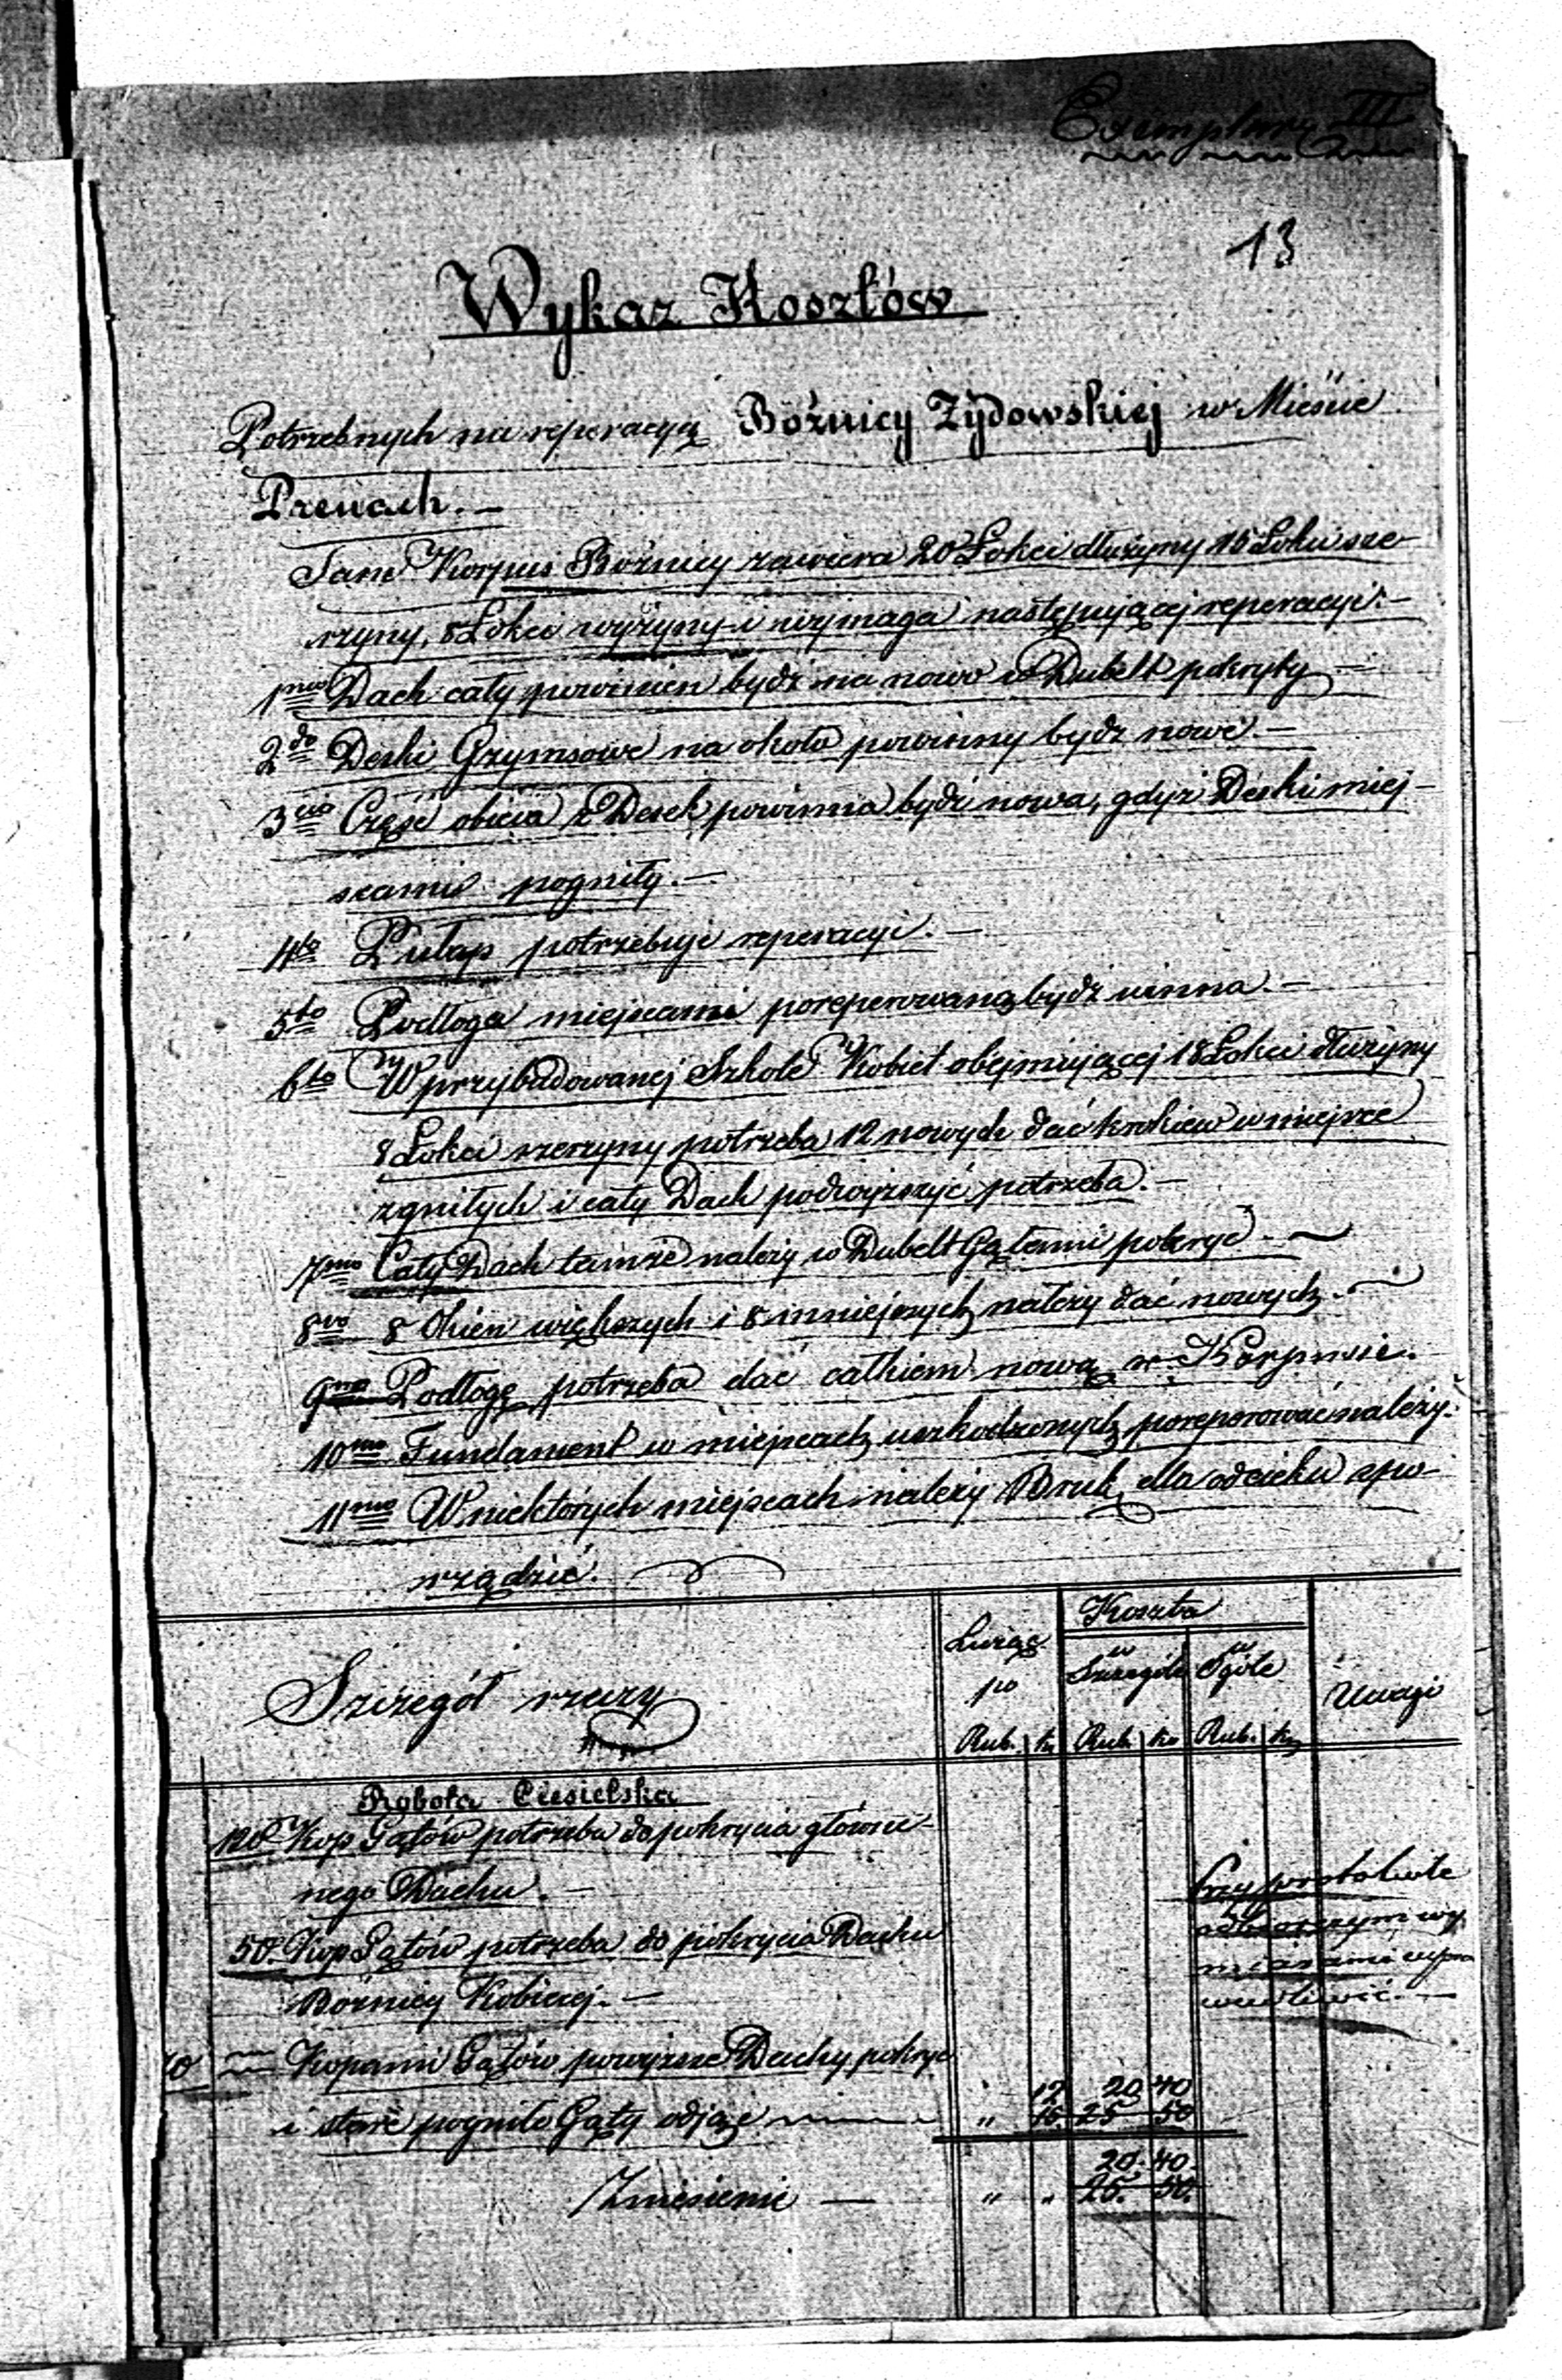 Exemplarz III
13
Wykaz Kosztów
Potrzebnych na reperacyą Bóźnicy Żydowskiej w Mieście
Pzenach. —
Sam Korpus Bóźnicy zawiera 20 Łokci dłużyny 16 Łokci sze-
rzyny, 8 Łokci wyżyny i wymaga następującej reperacyi. —
1mo Dach cały powinien bydź na nowo w Dubelt pokryty —
2do Deski Gzymsowe na około powinny bydź nowe. —
3cio Część obicia z Desek powinna bydź nowa, gdyż Deski miej-
scami pogniły. —
4to Pułap potrzebuje reperacyi. —
5to Podłoga miejscami poreperowaną bydź winna. —
6to W przybudowanej Szkole Kobiet obejmującej 18 Łokci dłużyny
8 Łokci szerzyny potrzeba 12 nowych dać krokiew w miejsce
zgniłych i cały Dach podwyższyć potrzeba. —
7mo Cały Dach tamże należy w Dubelt Gątami pokryć —
8vo 8 Okien większych i 8 mniejszych należy dać nowych. —
9no Podłogę potrzeba dać całkiem nową w Korpusie.
10mo Fundament w miejscach uszkodzonych poreperować należy.
11mo W niektórych miejscach należy Bruk dla odcieku spo-
rządzić.
Szczegół rzeczy
Licząc
po
Koszta
w Szczególe
w Ogóle
Uwagi
Rub. | k. Rub. | ko Rub. | k.
Robota Ciesielska
120 Kop Gątów potrzeba do pokrycia główne-
nego Dachu. —
50. Kop Gątów potrzeba do pokrycia Dachu
Bóźnicy Kobiecej. —
Przy
— Kopami Gątów powyższe Dachy pokryć
12 20 40
i stare pogniłe Gąty odjąć — „ 15 25 50
20. 40.
Zniesienie — „ „ 25. 50.